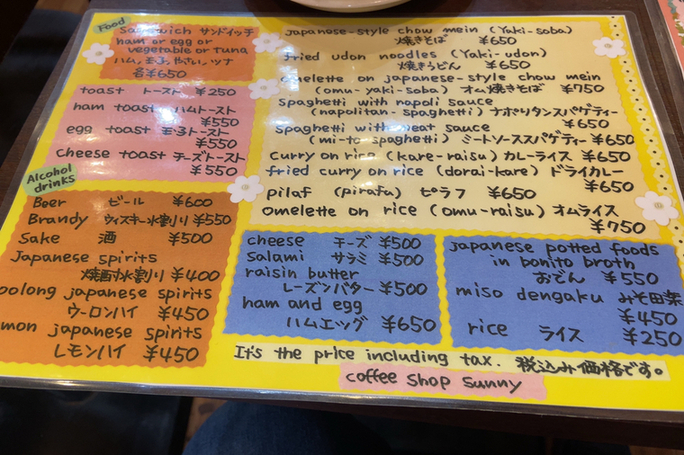 Food
Sandwich サンドイッチ
ham or egg or
vegetable or tuna
ハム,玉子,やさい,ツナ
各¥650
toast トースト ¥250
ham toast ハムトースト
¥550
egg toast 玉子トースト
¥550
cheese toast チーズトースト
¥550
Alcohol
drinks
Beer ビール ¥600
Brandy ウィスキー水割り ¥550
Sake 酒 ¥500
Japanese spirits
焼酎水割り ¥400
oolong japanese spirits
ウーロンハイ ¥450
mon japanese spirits
レモンハイ ¥450
japanese-style chow mein (Yaki-soba)
焼きそば ¥650
fried udon noodles (Yaki-udon)
焼きうどん ¥650
omelette on japanese-style chow mein
(omu-yaki-soba) オム焼きそば ¥750
spaghetti with napoli sauce
(napolitan-spaghetti) ナポリタンスパゲティー
¥650
spaghetti with meat sauce
(mi-to spaghetti) ミートソーススパゲティー ¥650
curry on rice (kare-raisu) カレーライス ¥650
fried curry on rice (dorai-kare) ドライカレー
¥650
pilaf (pirafu) ピラフ ¥650
omelette on rice (omu-raisu) オムライス
¥750
cheese チーズ ¥500
salami サラミ ¥500
raisin butter
レーズンバター ¥500
ham and egg
ハムエッグ ¥650
japanese potted foods
in bonito broth
おでん ¥550
miso dengaku みそ田楽
¥450
rice ライス ¥250
It's the price including tax. 税込み価格です。
coffee shop sunny